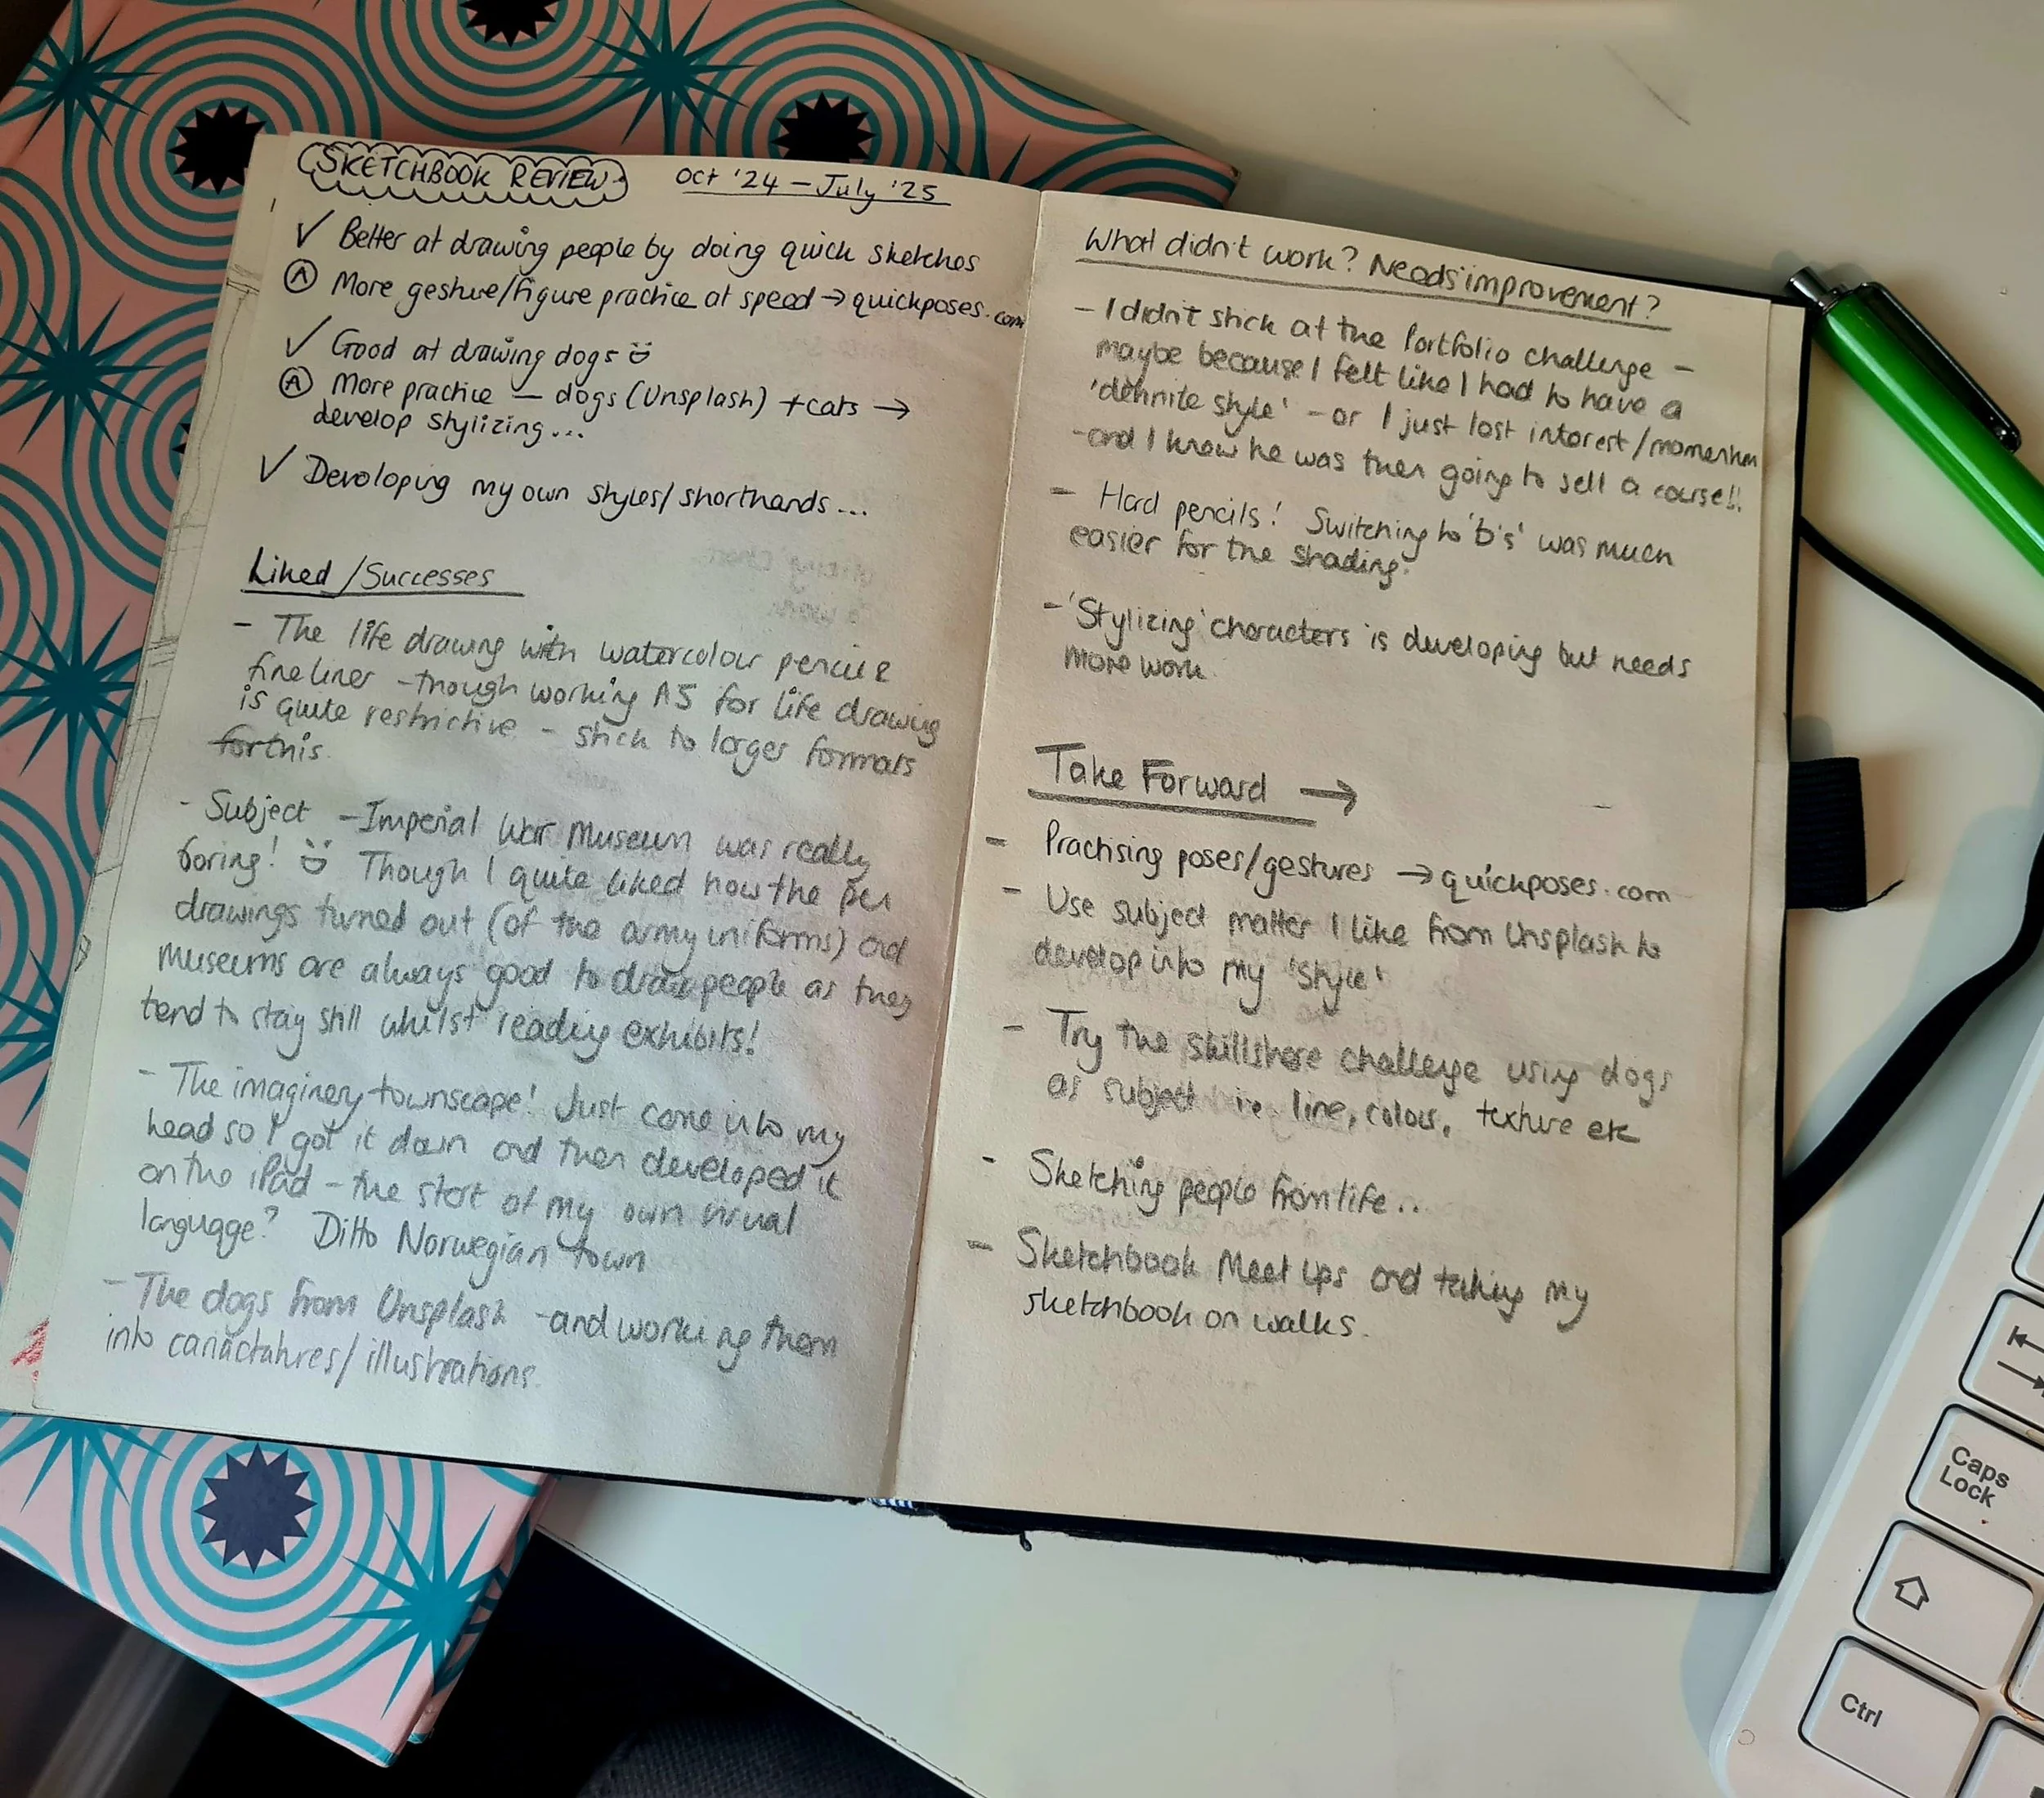 SKETCHBOOK REVIEW. Oct '24 – July '25
✓ Better at drawing people by doing quick sketches
Ⓐ More gesture/figure practice at speed → quickposes.com
✓ Good at drawing dogs ☺
Ⓐ More practice — dogs (Unsplash) + cats →
develop stylizing...
✓ Developing my own styles/shorthands...
Liked/Successes
- The life drawing with watercolour pencil &
fineliner - though working A5 for life drawing
is quite restrictive - stick to larger formats
for this.
- Subject - Imperial War Museum was really
boring! ☺ Though I quite liked how the pen
drawings turned out (of the army uniforms) and
museums are always good to draw people as they
tend to stay still whilst reading exhibits!
- The imaginery townscape! Just came into my
head so I got it down and then developed it
on the iPad - the start of my own visual
language? Ditto Norwegian town
- The dogs from Unsplash - and working them
into cariactatures/illustrations.
What didn't work? Needs improvement?
- I didn't stick at the Portfolio challenge -
maybe because I felt like I had to have a
'definite style' - or I just lost interest/momentum
- and I knew he was then going to sell a course!!
- Hard pencils! Switching to 'b's' was much
easier for the shading.
- 'Stylizing' characters is developing but needs
more work.
Take Forward →
- Practising poses/gestures → quickposes.com
- Use subject matter I like from Unsplash to
develop into my 'style'
- Try the skillshare challenge using dogs
as subject ie line, colour, texture etc
- Sketching people from life..
- Sketchbook Meet ups and taking my
sketchbook on walks.
Caps
Lock
Ctrl